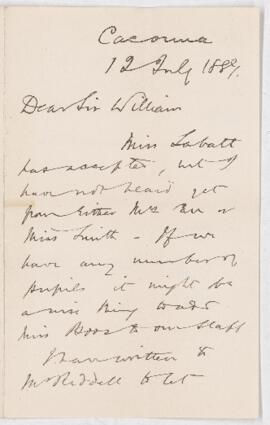 Cacouna
12 July 1889.
Dear Sir William
Miss Labatt
has accepted, but I
have not heard yet
from Either Mrs
Miss Smith - If we
have any number of
pupils it might be
a wise thing to add
Miss to our Staff
I have written to
Mr Riddell to let